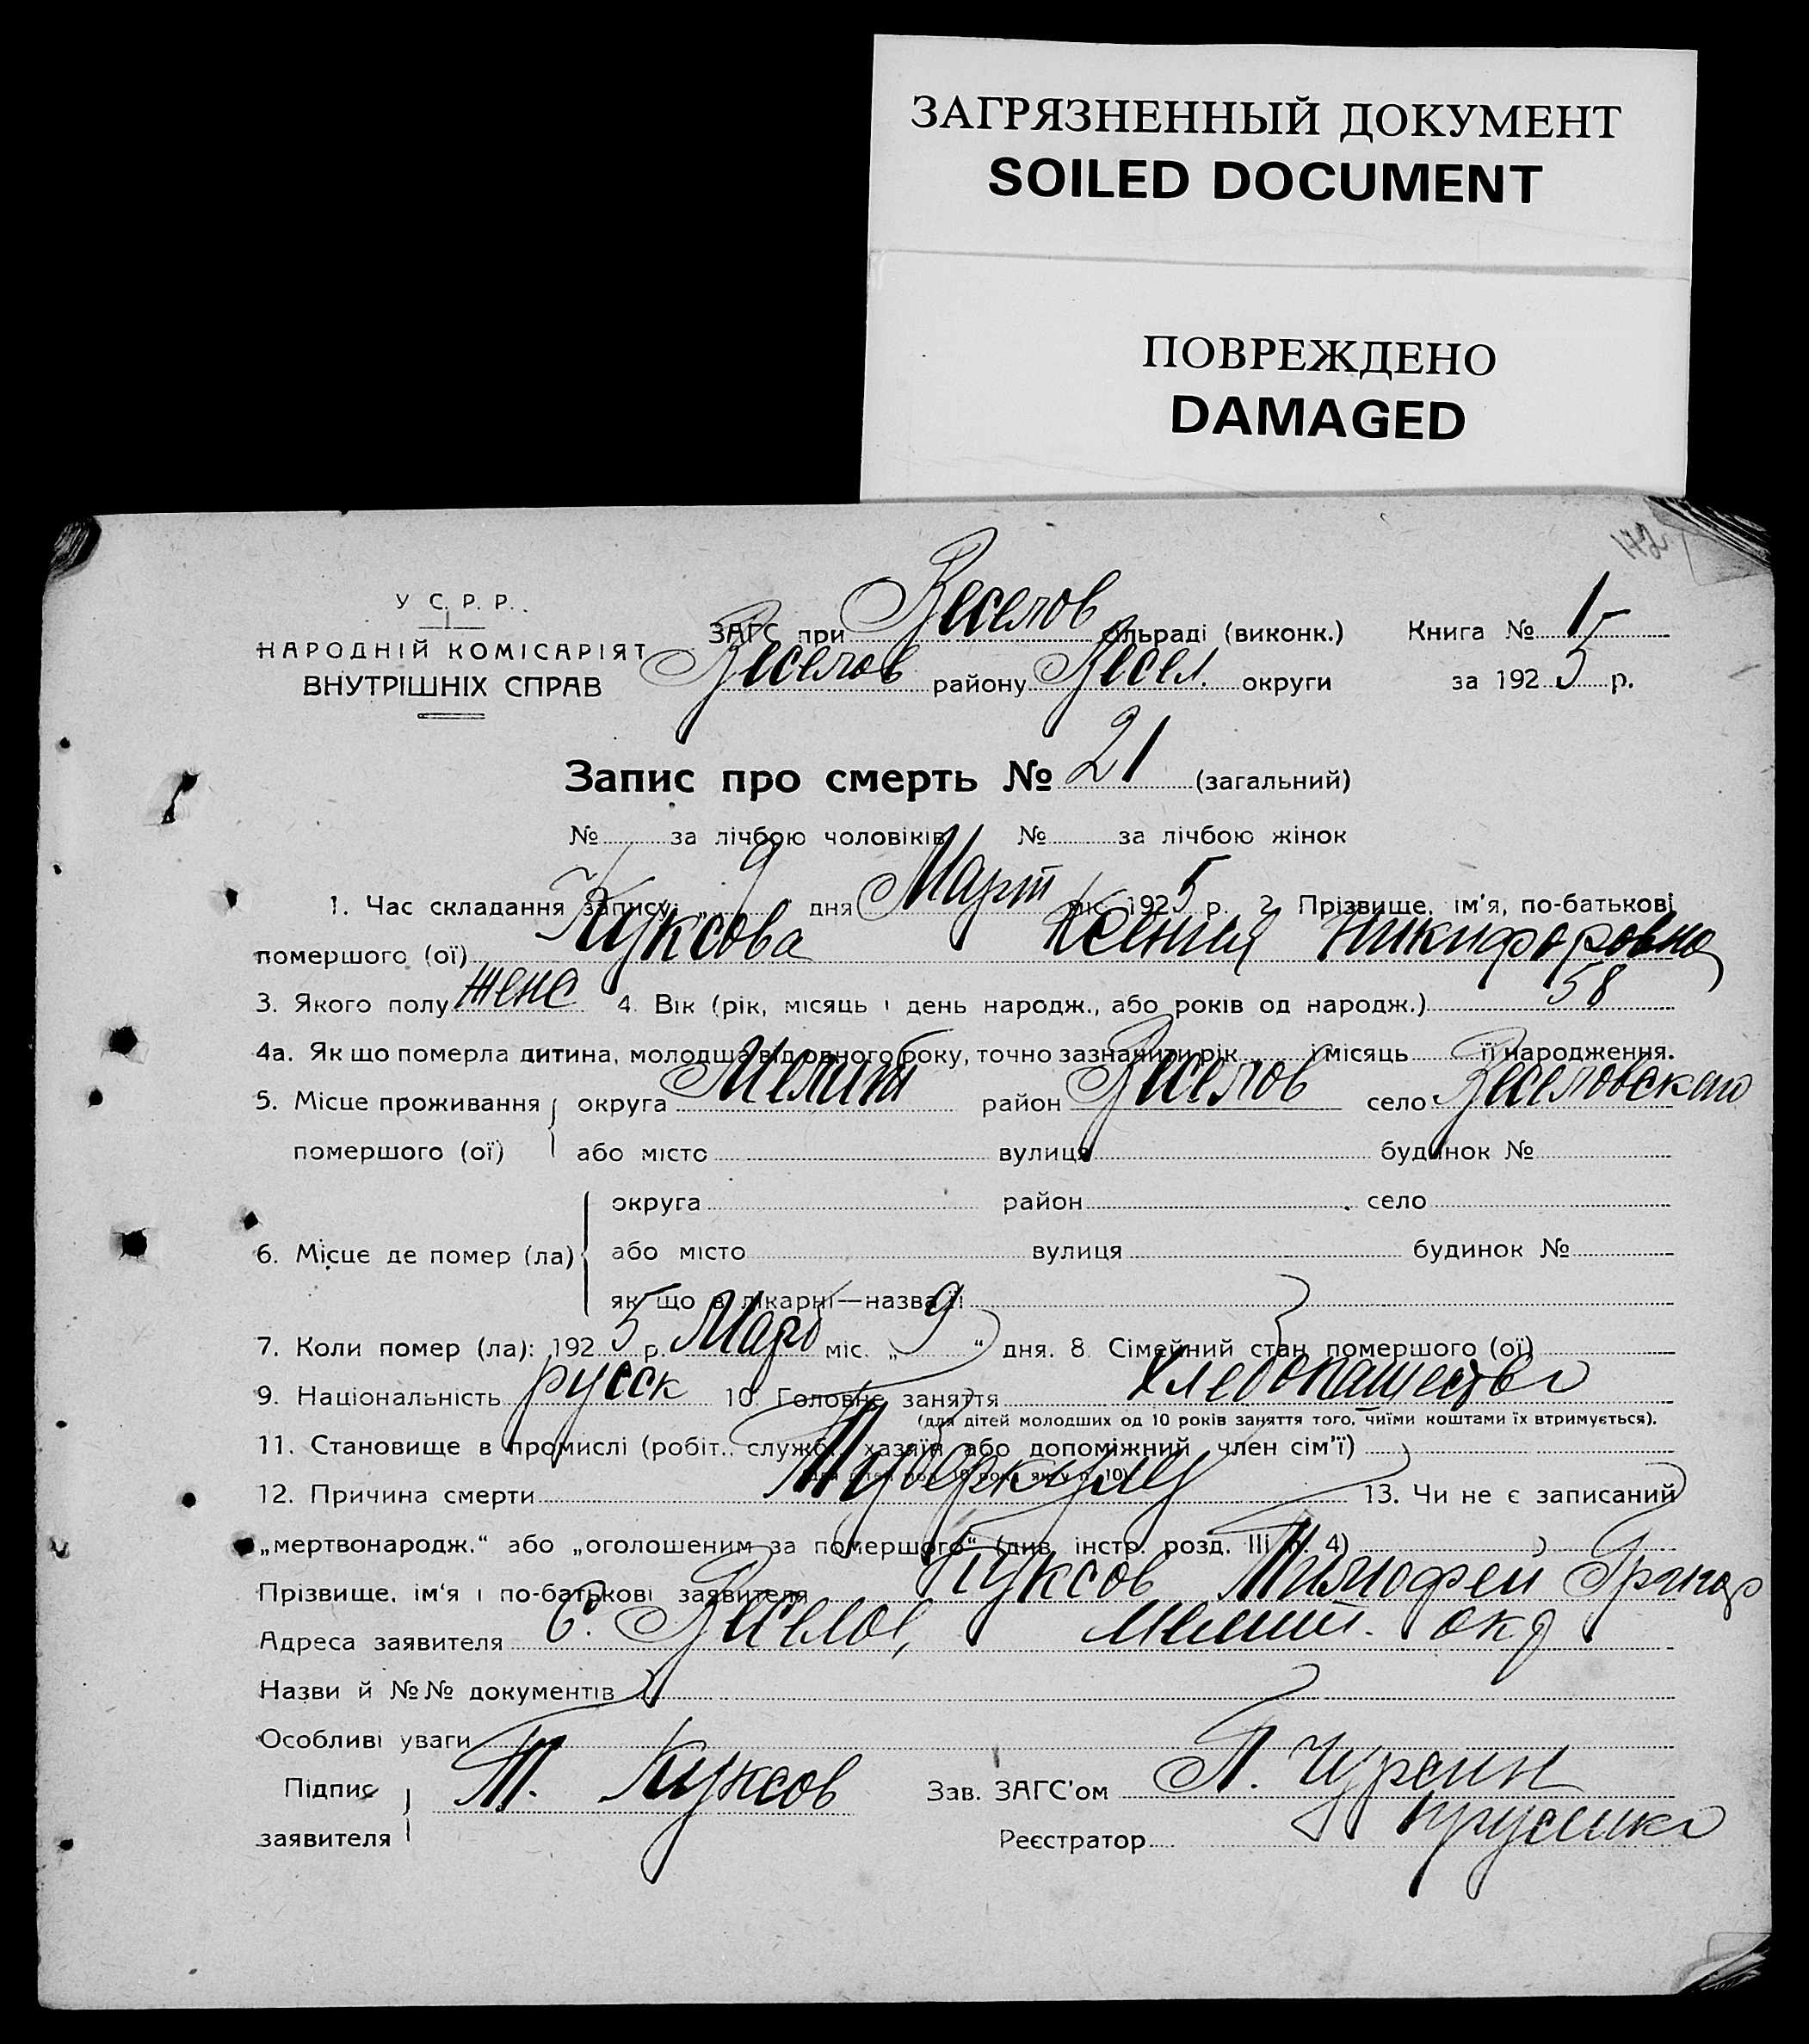 ЗАГРЯЗНЕННЫЙ ДОКУМЕНТ
SOILED DOCUMENT
ПОВРЕЖДЕНО
DAMAGED
У С. Р. Р.
НАРОДНІЙ КОМІСАРІЯТ
ВНУТРІШНІХ СПРАВ
ЗАГС при Веселов сільраді (виконк.) Книга № 1
Веселов району Весел. округи за 1925 р.
Запис про смерть № 21 (загальний)
№ за лічбою чоловіків № за лічбою жінок
1. Час складання запису: „ 9 дня Март міс. 1925 р. 2. Прізвище, ім'я, по-батькові
помершого (ої) Куксова Ксения Никифоровна
3. Якого полу жен 4. Вік (рік, місяць і день народж., або років од народж.) 58
4а. Як що померла дитина, молодша від одного року, точно зазначити рік і місяць її народження.
5. Місце проживання округа Мелит район Веселов село Веселовском
помершого (ої) або місто вулиця будинок №
округа район село
6. Місце де помер (ла) або місто вулиця будинок №
як що в лікарні—назва її
7. Коли помер (ла): 1925 р. Март міс. „ 9 “ дня. 8. Сімейний стан помершого (ої)
9. Національність русск 10. Головне заняття Хлебопашество
(для дітей молодших од 10 років заняття того, чиїми коштами їх втримується).
11. Становище в промислі (робіт., служб., хазяїн або допоміжний член сім'ї)
12. Причина смерти Туберкулез 13. Чи не є записаний
„мертвонародж.“ або „оголошеним за помершого“ (див. інстр. розд. III п. 4)
Прізвище, ім'я і по-батькові заявителя Куксов Тимофей Григор
Адреса заявителя С. Весело, Мелит. окр
Назви й №№ документів
Особливі уваги
Підпис Т. Куксов Зав. ЗАГС'ом П. Чурсин
заявителя Реєстратор